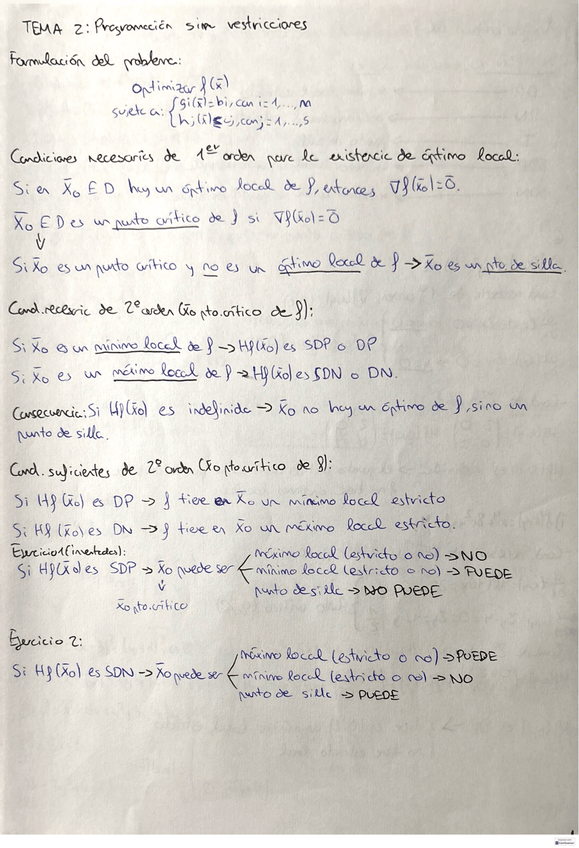 TEMA 2: Programación sin restricciones
Formulación del problema:
Optimizar f(x̄)
sujeto a: { gi(x̄)=bi, con i=1,...,m
{ hj(x̄)≤cj, con j=1,...,s
Condiciones necesarias de 1er orden para la existencia de óptimo local:
Si en x̄0 ∈ D hay un óptimo local de f, entonces ∇f(x̄0)=0̄.
x̄0 ∈ D es un punto crítico de f si ∇f(x̄0)=0̄
⇓
Si x̄0 es un punto crítico y no es un óptimo local de f → x̄0 es un pto. de silla.
Cond. necesaria de 2º orden (x̄0 pto. crítico de f):
Si x̄0 es un mínimo local de f → Hf(x̄0) es SDP o DP
Si x̄0 es un máximo local de f → Hf(x̄0) es SDN o DN.
Consecuencia: Si Hf(x̄0) es indefinida → x̄0 no hay un óptimo de f, sino un
punto de silla.
Cond. suficientes de 2º orden (x̄0 pto. crítico de f):
Si Hf(x̄0) es DP → f tiene en x̄0 un mínimo local estricto
Si Hf(x̄0) es DN → f tiene en x̄0 un máximo local estricto.
Ejercicio 1 (inventados):
Si Hf(x̄0) es SDP → x̄0 puede ser
máximo local (estricto o no) → NO
mínimo local (estricto o no) → PUEDE
punto de silla → NO PUEDE
↓
x̄0 pto. crítico
Ejercicio 2:
Si Hf(x̄0) es SDN → x̄0 puede ser
máximo local (estricto o no) → PUEDE
mínimo local (estricto o no) → NO
punto de silla → PUEDE